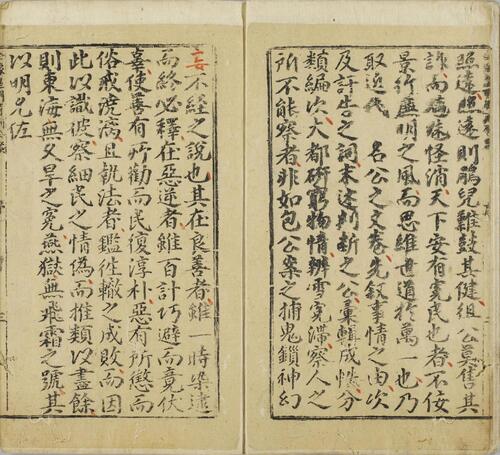 照邇昭遠則鵰兒難鼓其健組公莫售其
詐而癘瘧怪消天下安有寃民也者不佞
景行廉明之風而思維世道於萬一也乃
取近代 名公之文卷先叙事情之由次
及訐告之詞末述判斷之公彙輯成帙分
類編次大都研窮物情辨雪冤滯察人之
所不能察者非如包公案之捕鬼鎖神幻
妄不經之說也其在良善者雖一時染逮
而終必釋在惡逆者雖百計巧避而竟伏
辜使善有所勸而民復淳朴惡有所懲而
俗戒澆漓且執法者鑑徃轍之成敗而因
此以識彼察細民之情偽而推類以盡餘
則東海無久旱之寃燕獄無飛霜之號其
以明允佐